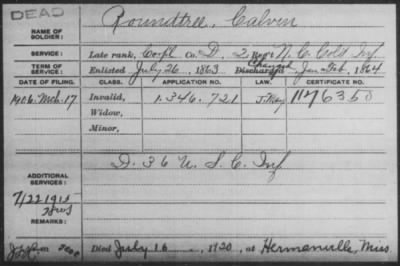 DEAD
NAME OF SOLDIER: Roundtree, Calvin
SERVICE: Late rank, Corpl Co. D, 2 Reg't N. C. Cold Inf.
TERM OF SERVICE: Enlisted July 26, 1863 Discharged Changed Jan & Feb, 1864
DATE OF FILING. CLASS. APPLICATION NO. LAW. CERTIFICATE NO.
1906. Mch. 17 Invalid, 1.346.721 1176350
Widow,
Minor,
ADDITIONAL SERVICES: D. 36 U. S. C. Inf.
7/22 1915
REMARKS:
Died July 16, 1920, at Hermanville, Miss